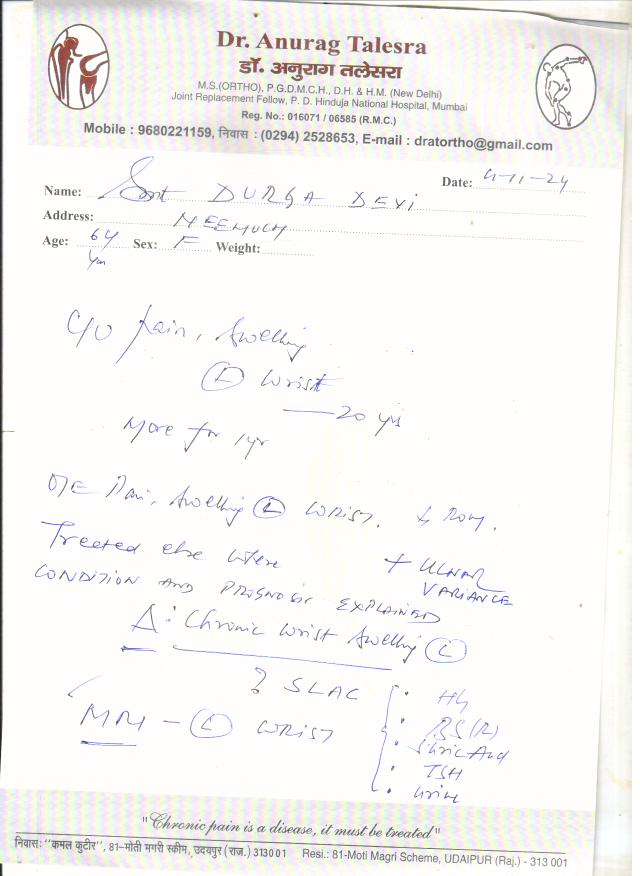 Dr. Anurag Talesra
डॉ. अनुराग तलेसरा
M.S.(ORTHO), P.G.D.M.C.H., D.H. & H.M. (New Delhi)
Joint Replacement Fellow, P. D. Hinduja National Hospital, Mumbai
Reg. No.: 016071 / 06585 (R.M.C.)
Mobile : 9680221159, निवास : (0294) 2528653, E-mail : dratortho@gmail.com
Date: 4-11-24
Name: Smt DURGA DEVI
Address: NEEMUCH
Age: 64 yrs Sex: F Weight:
C/O Pain, Swelling
(L) Wrist
— 20 yrs
More for 1yr
O/E Pain, Swelling (L) WRIST. ↓ ROM.
Treated else where + ULNAR VARIANCE
CONDITION AND PROGNOSIS EXPLAINED
Δ: Chronic wrist swelling (L)
? SLAC
MRI - (L) WRIST
• Hb
• BS(R)
• S. Uric Acid
• TSH
• Urine
"Chronic pain is a disease, it must be treated"
निवास: "कमल कुटीर", 81-मोती मगरी स्कीम, उदयपुर (राज.) 313001 Resi.: 81-Moti Magri Scheme, UDAIPUR (Raj.) - 313 001